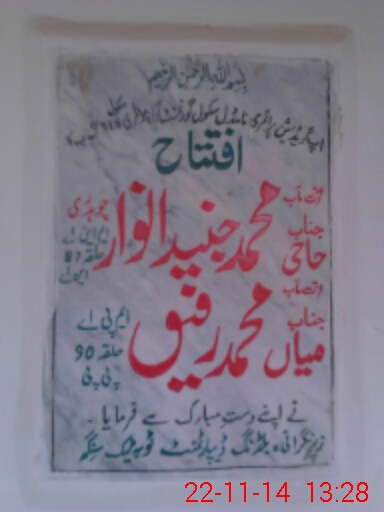 بسم اللہ الرحمن الرحیم
اپ گریڈیشن پرائمری تا مڈل سکول گورنمنٹ
افتتاح
عزت مآب جناب حاجی محمد جنید انوار چوہدری ایم این اے حلقہ 87 این اے
عزت مآب جناب میاں محمد رفیق ایم پی اے حلقہ 90 پی پی
نے اپنے دست مبارک سے فرمایا ۔
زیر نگرانی، بلڈنگ ڈیپارٹمنٹ ٹوبہ ٹیک سنگھ
22-11-14 13:28